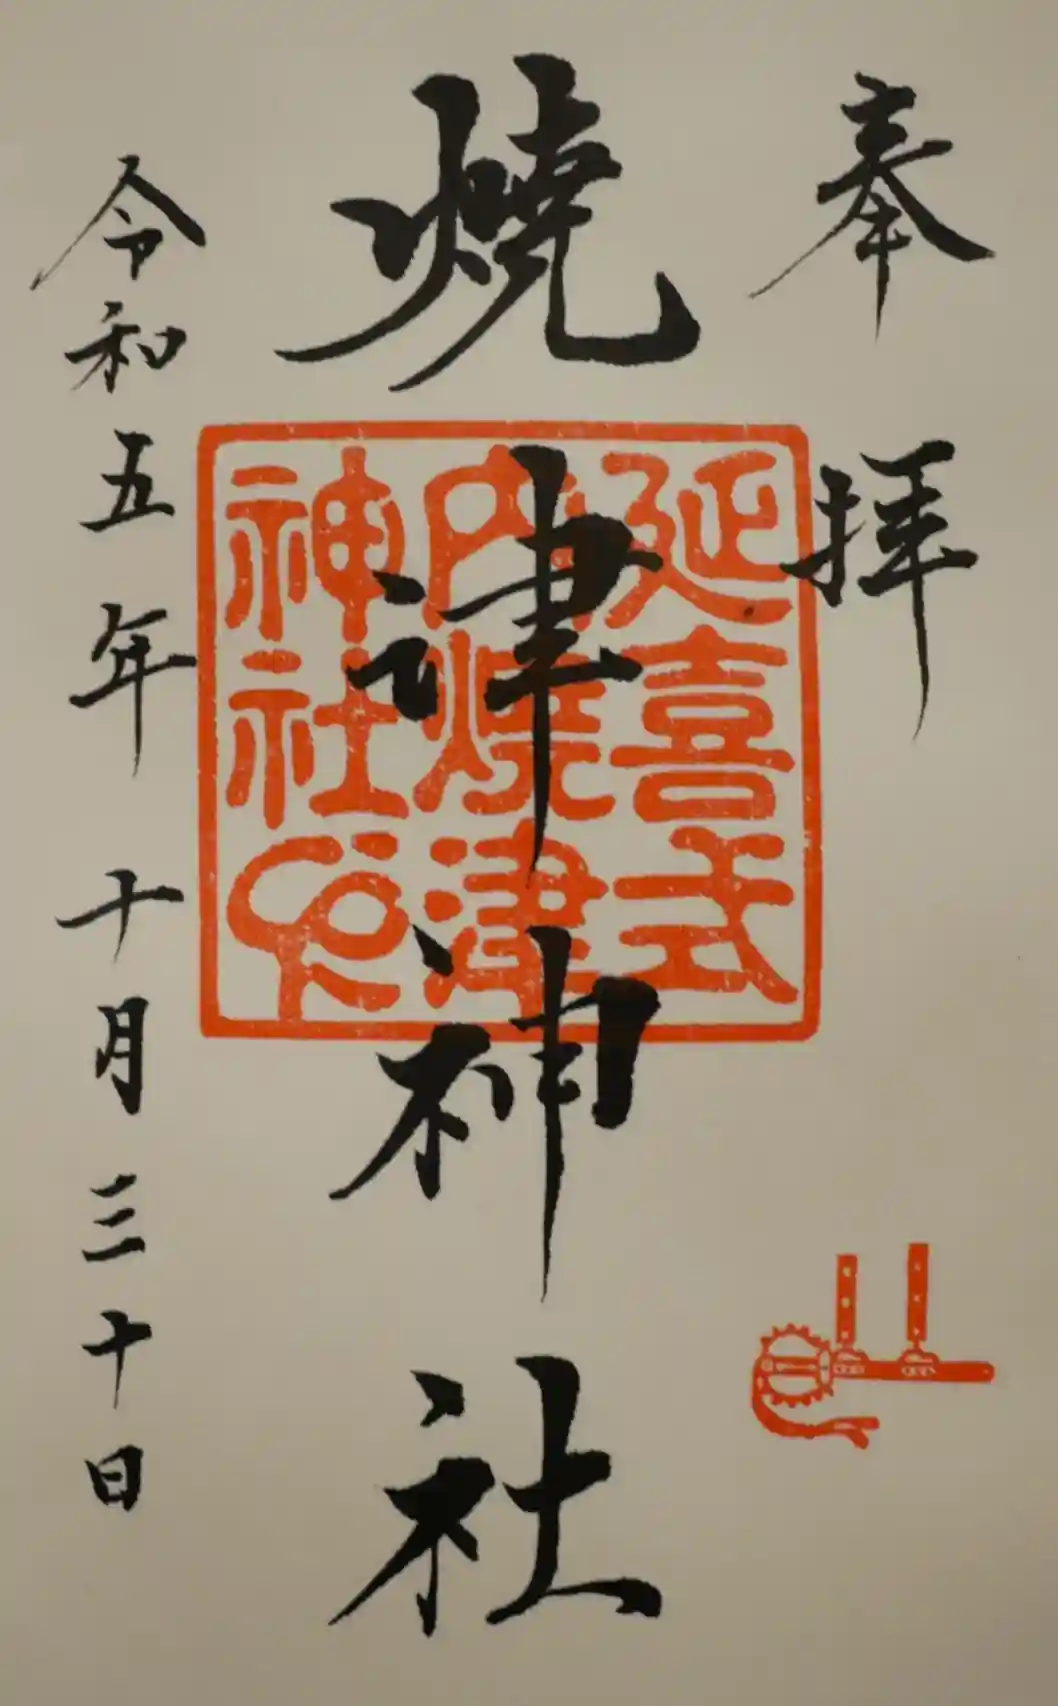 奉拝
燒津神社
延喜式
内燒津
神社印
令和五年 十月三十日